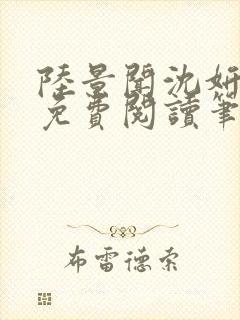 陸景聞沈妍
免費閱讀筆
布雷德索